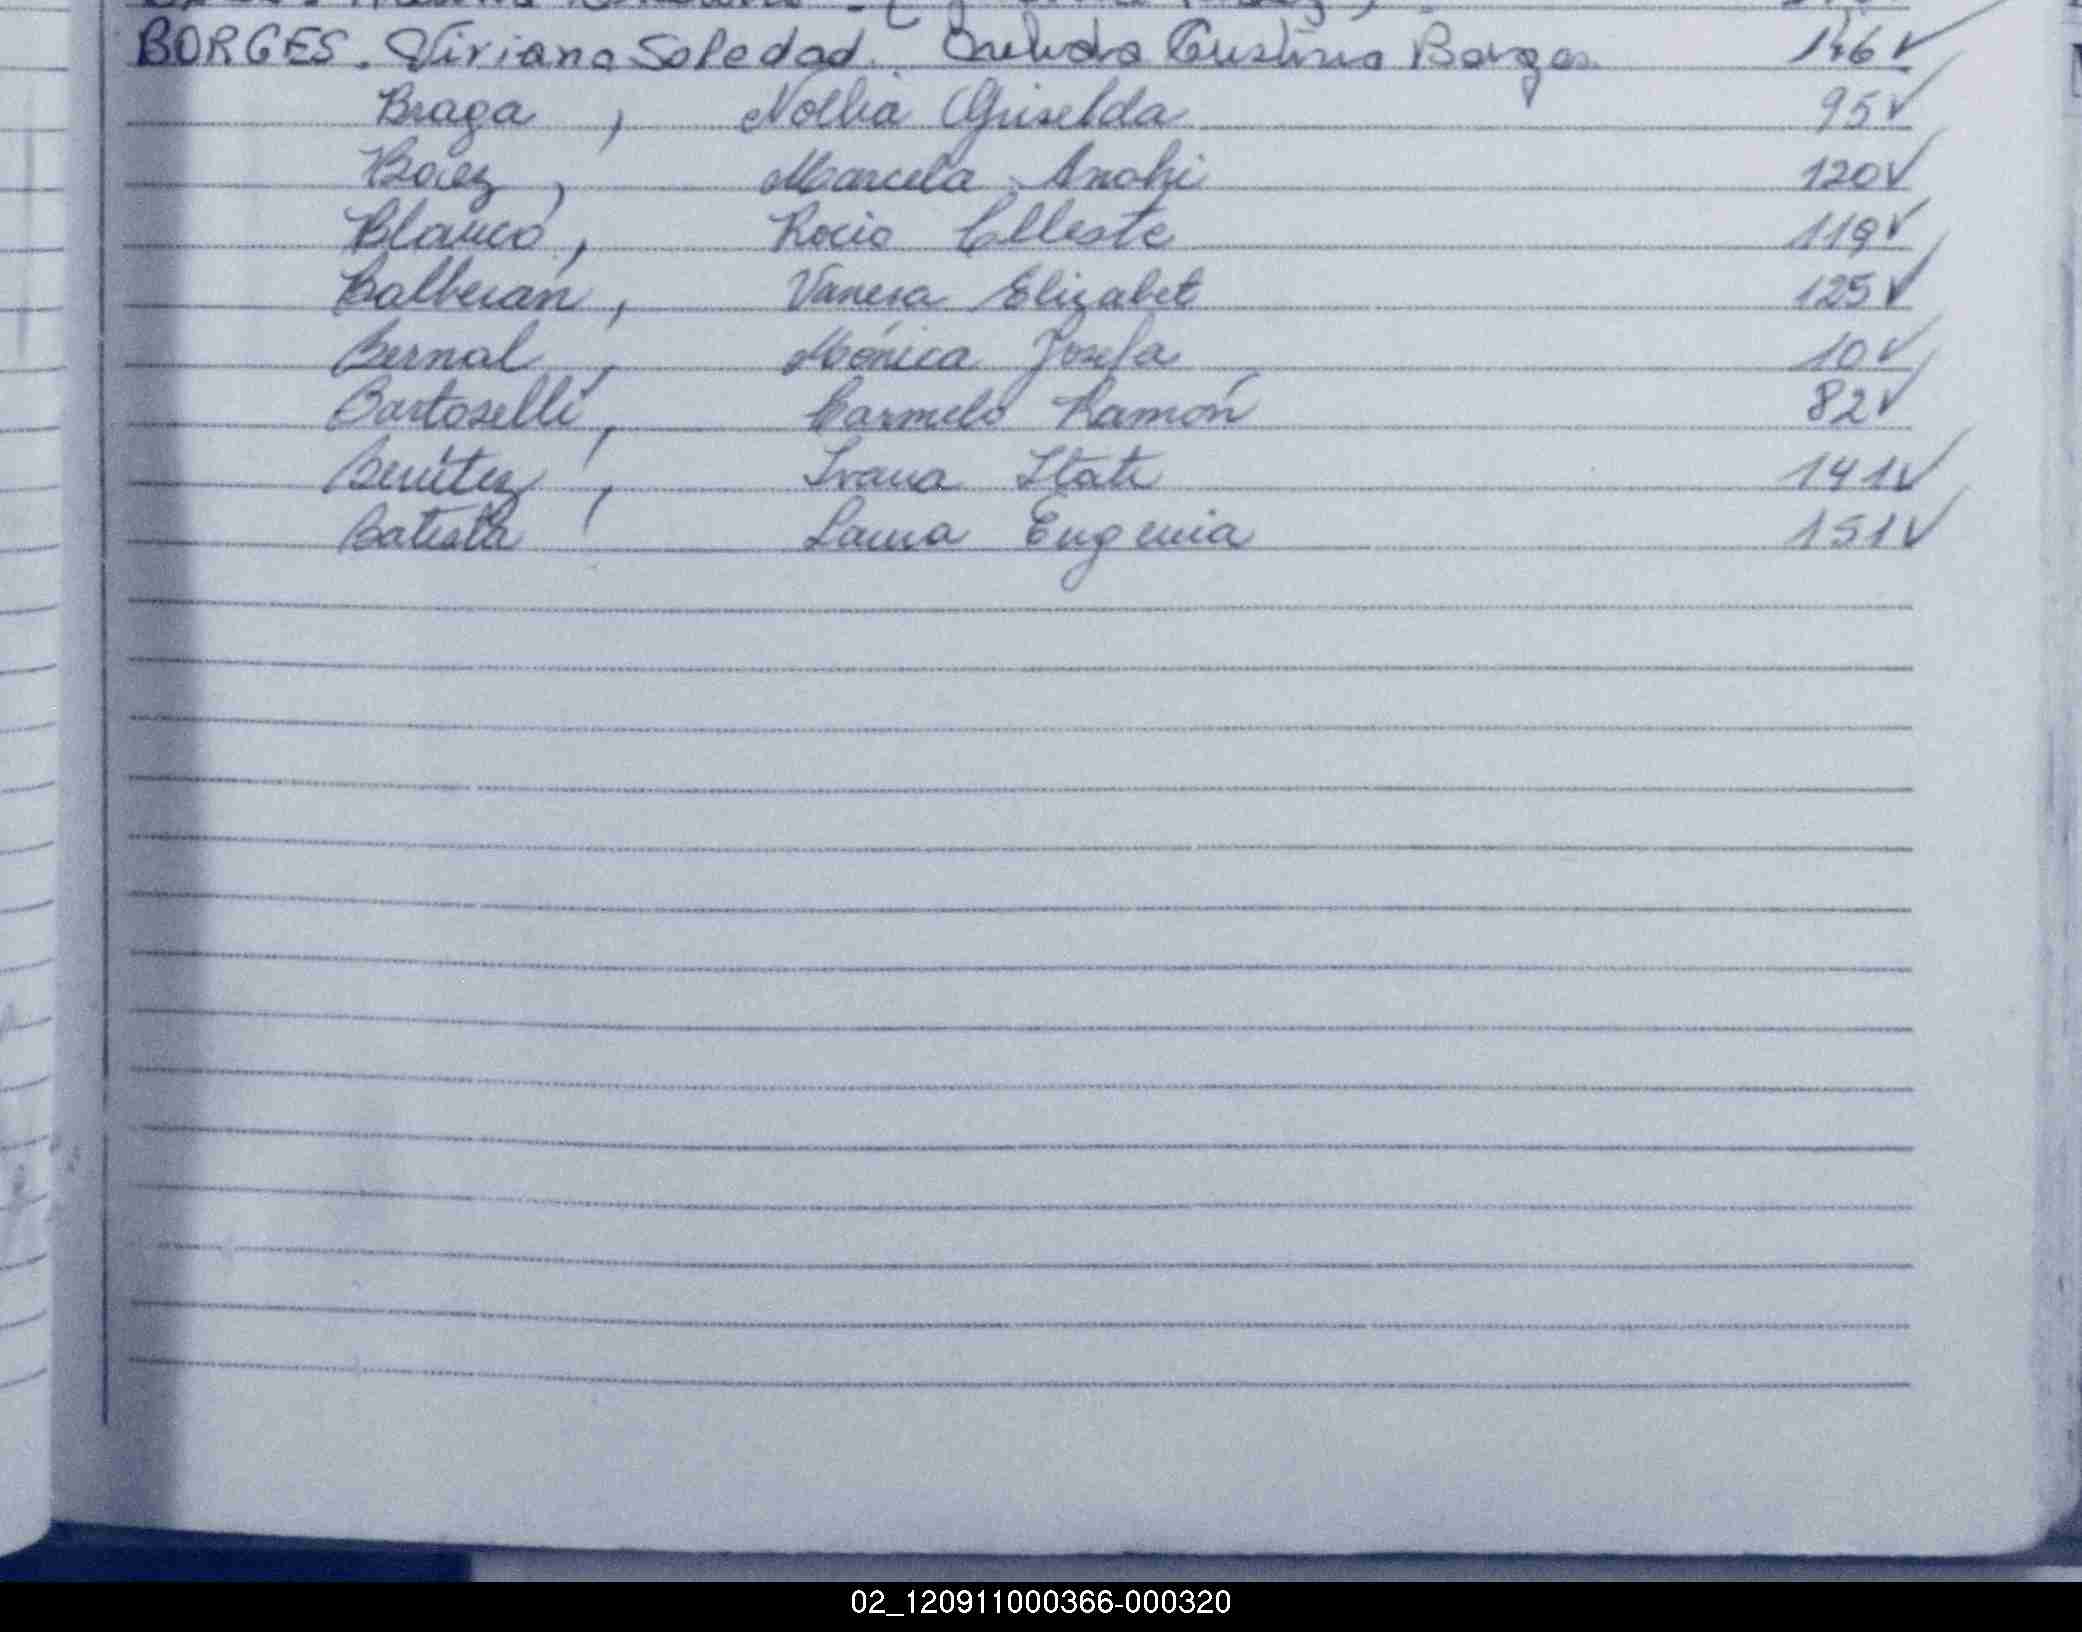 BORGES. Viriana Soledad. Cristina Borges 146✓
Braga, Nolbia Griselda 95✓
Báez, Marcela Anahi 120✓
Blanco, Rocio Celleste 119✓
Balberán, Vanesa Elizabet 125✓
Bernal, Mónica Josefa 10✓
Bartoselli, Carmelo Ramón 82✓
Benítez, Ivana Itati 141✓
Batista Laura Eugenia 151✓
02_120911000366-000320